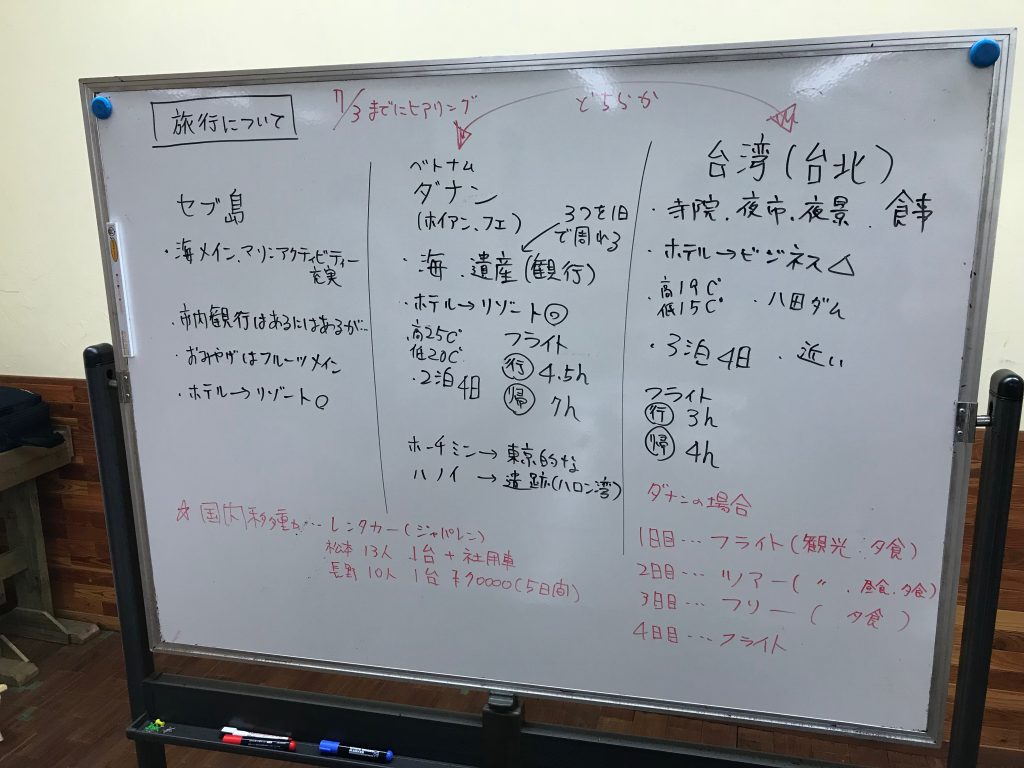 旅行について
7/3までにヒアリング
どちらか
セブ島
・海メイン、マリンアクティビティー
充実
・市内観行はあるにはあるが…
・おみやげはフルーツメイン
・ホテル→リゾート○
ベトナム
ダナン
(ホイアン、フエ)
3つを1日
で周れる
・海、遺産(観行)
・ホテル→リゾート◎
高25℃
低20℃
・2泊4日
フライト
行 4.5h
帰 7h
ホーチミン→東京的な
ハノイ →遺跡(ハロン湾)
台湾(台北)
・寺院、夜市、夜景、食事
・ホテル→ビジネス△
高19℃
低15℃
・八田ダム
・3泊4日 ・近い
フライト
行 3h
帰 4h
☆国内移動…レンタカー(ジャパレン)
松本 13人 1台+社用車
長野 10人 1台 ¥90000(5日間)
ダナンの場合
1日目…フライト(観光:夕食)
2日目…ツアー(〃、昼食、夕食)
3日目…フリー( 夕食 )
4日目…フライト